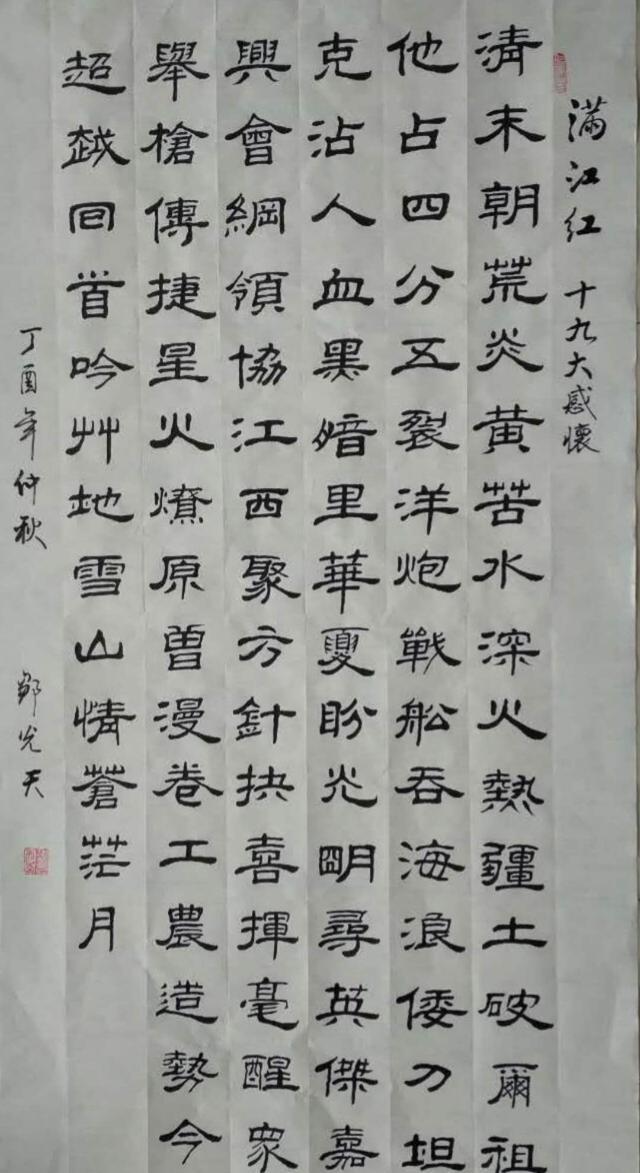 满江红 十九大感怀
清末朝荒炎黄苦水深火熱疆土破爾祖
他占四分五裂洋炮戰船吞海浪倭刀坦
克沾人血黑暗里華夏盼光明尋英傑嘉
興會綱領協江西聚方針抉喜揮毫醒眾
舉槍傳捷星火燎原曾漫卷工農造勢今
超越回首吟艸地雪山情蒼茫月
丁酉年仲秋 光天